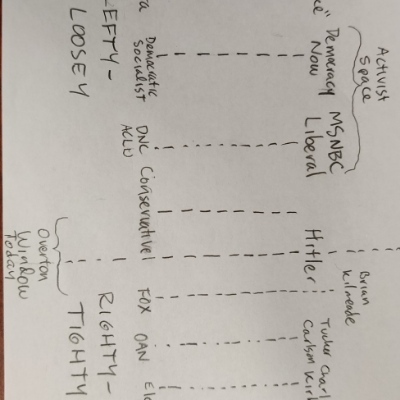 Activist
Space
Democracy
Now
MSNBC
Liberal
Hitler
Brian
Kilmeade
Tucker
Carlson
Democratic
Socialist
DNC
ACLU
Conservative
FOX
OAN
LEFTY-
LOOSEY
RIGHTY-
TIGHTY
Overton
Window
Today